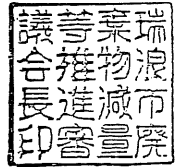 瑞浪市廃
棄物減量
等推進審
議会長印